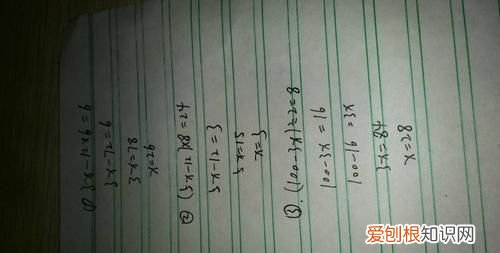 ① 3x-12×6=6
3x-72=6
3x=78
x=26
② (5x-12)×8=24
5x-12=3
5x=15
x=3
③. (100-3x)÷2=8
100-3x=16
100-16=3x
3x=84
x=28
爱刨根知识网